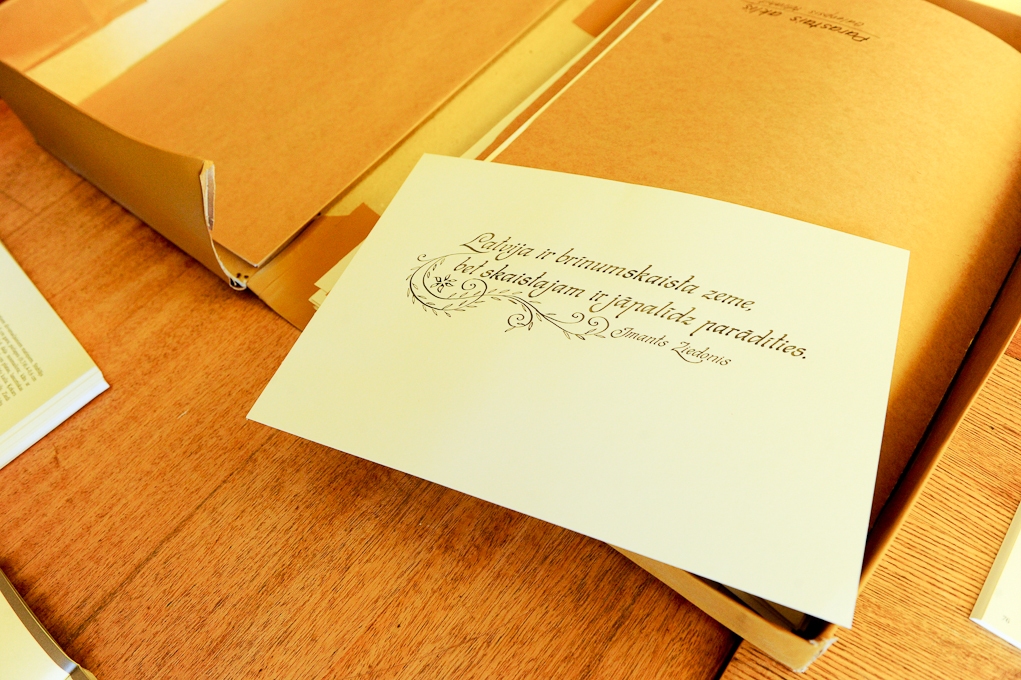 Parastais aklis
Latvija ir brīnumskaista zeme,
bet skaistajam ir jāpalīdz parādīties.
Imants Ziedonis